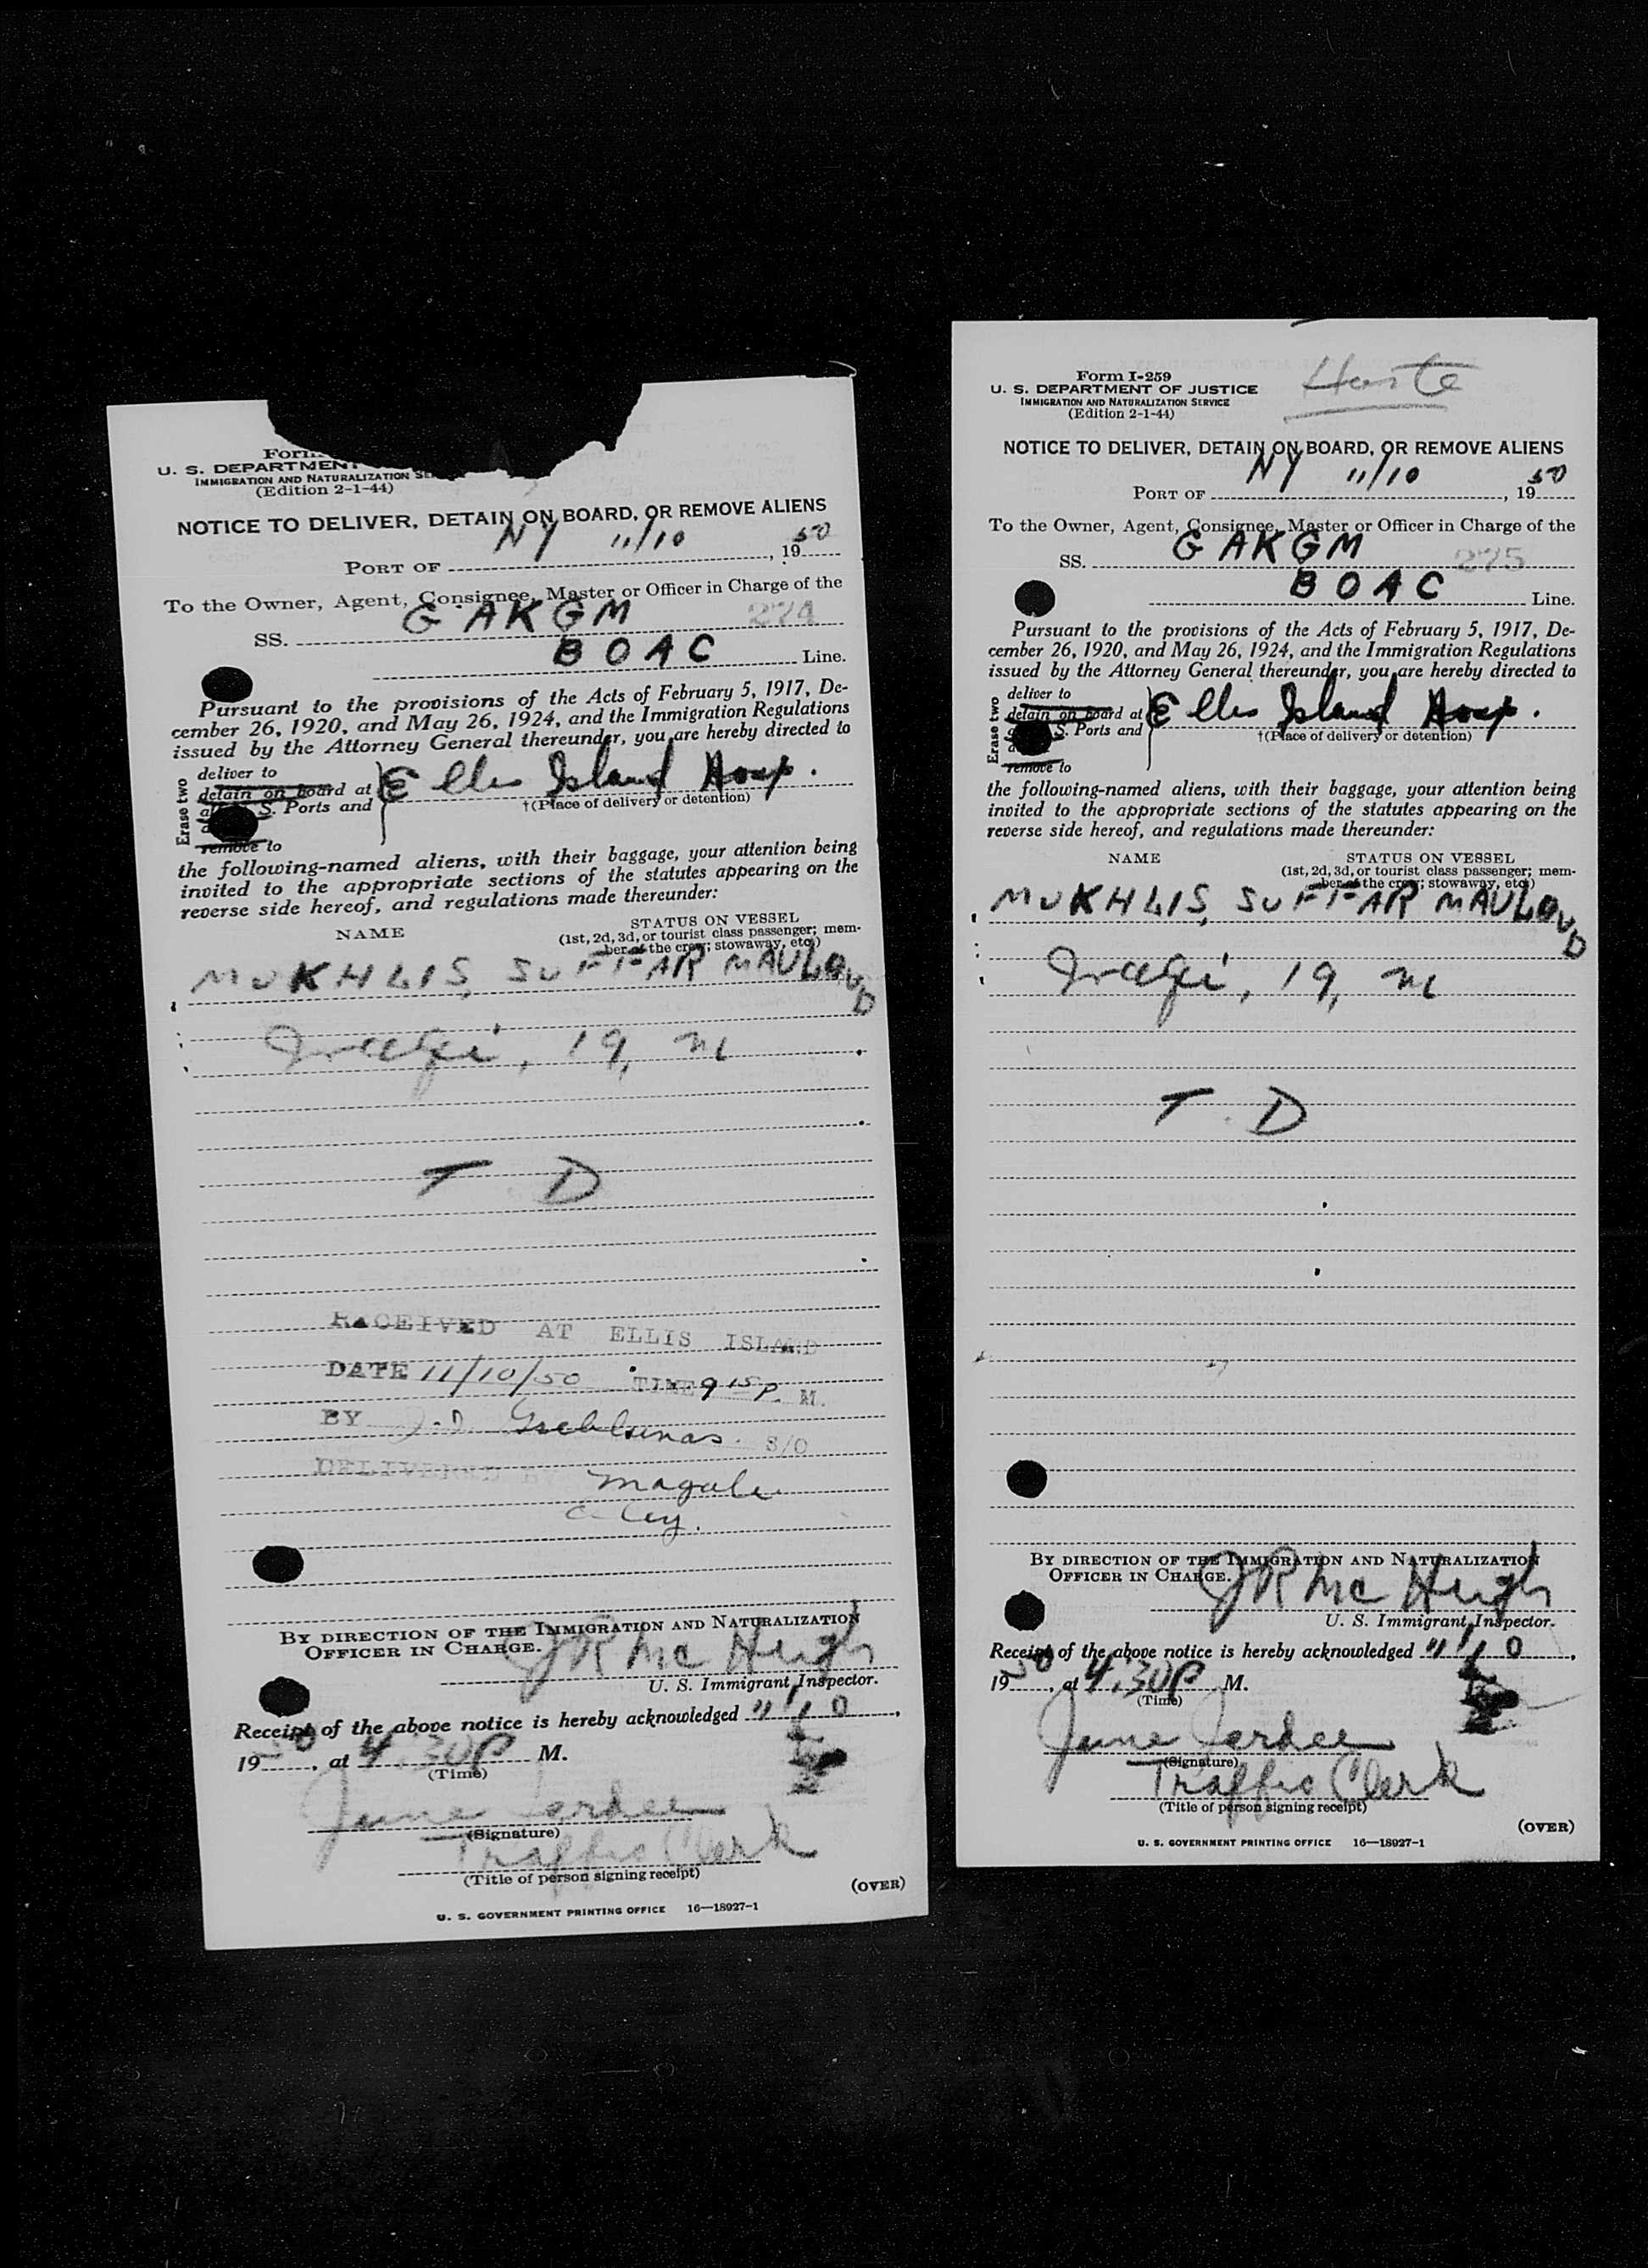 Form
U. S. DEPARTMENT
IMMIGRATION AND NATURALIZATION SE
(Edition 2-1-44)
NOTICE TO DELIVER, DETAIN ON BOARD, OR REMOVE ALIENS
PORT OF NY 11/10, 1950
To the Owner, Agent, Consignee, Master or Officer in Charge of the
SS. G AKGM 274
BOAC Line.
Pursuant to the provisions of the Acts of February 5, 1917, De-
cember 26, 1920, and May 26, 1924, and the Immigration Regulations
issued by the Attorney General thereunder, you are hereby directed to
Erase two
deliver to
detain on board at
S. Ports and
remove to
Ellis Island Hosp.
†(Place of delivery or detention)
the following-named aliens, with their baggage, your attention being
invited to the appropriate sections of the statutes appearing on the
reverse side hereof, and regulations made thereunder:
NAME
STATUS ON VESSEL
(1st, 2d, 3d, or tourist class passenger; mem-
ber of the crew; stowaway, etc.)
MUKHLIS, SUFFAR MAULOUD
Iraqi, 19, m
T D
RECEIVED AT ELLIS ISLAND
DATE 11/10/50 TIME 9 15 P. M.
BY S/O
DELIVERED BY
BY DIRECTION OF THE IMMIGRATION AND NATURALIZATION
OFFICER IN CHARGE.
JR McHeigh
U. S. Immigrant Inspector.
Receipt of the above notice is hereby acknowledged 11/10,
1950, at 4:30P M.
(Time)
June Jerdee
(Signature)
Traffic Clerk
(Title of person signing receipt)
(OVER)
U. S. GOVERNMENT PRINTING OFFICE 16—18927-1
Form I-259
U. S. DEPARTMENT OF JUSTICE
IMMIGRATION AND NATURALIZATION SERVICE
(Edition 2-1-44)
Harte
NOTICE TO DELIVER, DETAIN ON BOARD, OR REMOVE ALIENS
PORT OF NY 11/10, 1950
To the Owner, Agent, Consignee, Master or Officer in Charge of the
SS. G AKGM 275
BOAC Line.
Pursuant to the provisions of the Acts of February 5, 1917, De-
cember 26, 1920, and May 26, 1924, and the Immigration Regulations
issued by the Attorney General thereunder, you are hereby directed to
Erase two
deliver to
detain on board at
S. Ports and
remove to
Ellis Island Hosp.
†(Place of delivery or detention)
the following-named aliens, with their baggage, your attention being
invited to the appropriate sections of the statutes appearing on the
reverse side hereof, and regulations made thereunder:
NAME
STATUS ON VESSEL
(1st, 2d, 3d, or tourist class passenger; mem-
ber of the crew; stowaway, etc.)
MUKHLIS, SUFFAR MAULOUD
Iraqi, 19, m
T D
BY DIRECTION OF THE IMMIGRATION AND NATURALIZATION
OFFICER IN CHARGE.
JR McHeigh
U. S. Immigrant Inspector.
Receipt of the above notice is hereby acknowledged 11/10,
1950, at 4:30P M.
(Time)
June Jerdee
(Signature)
Traffic Clerk
(Title of person signing receipt)
(OVER)
U. S. GOVERNMENT PRINTING OFFICE 16—18927-1